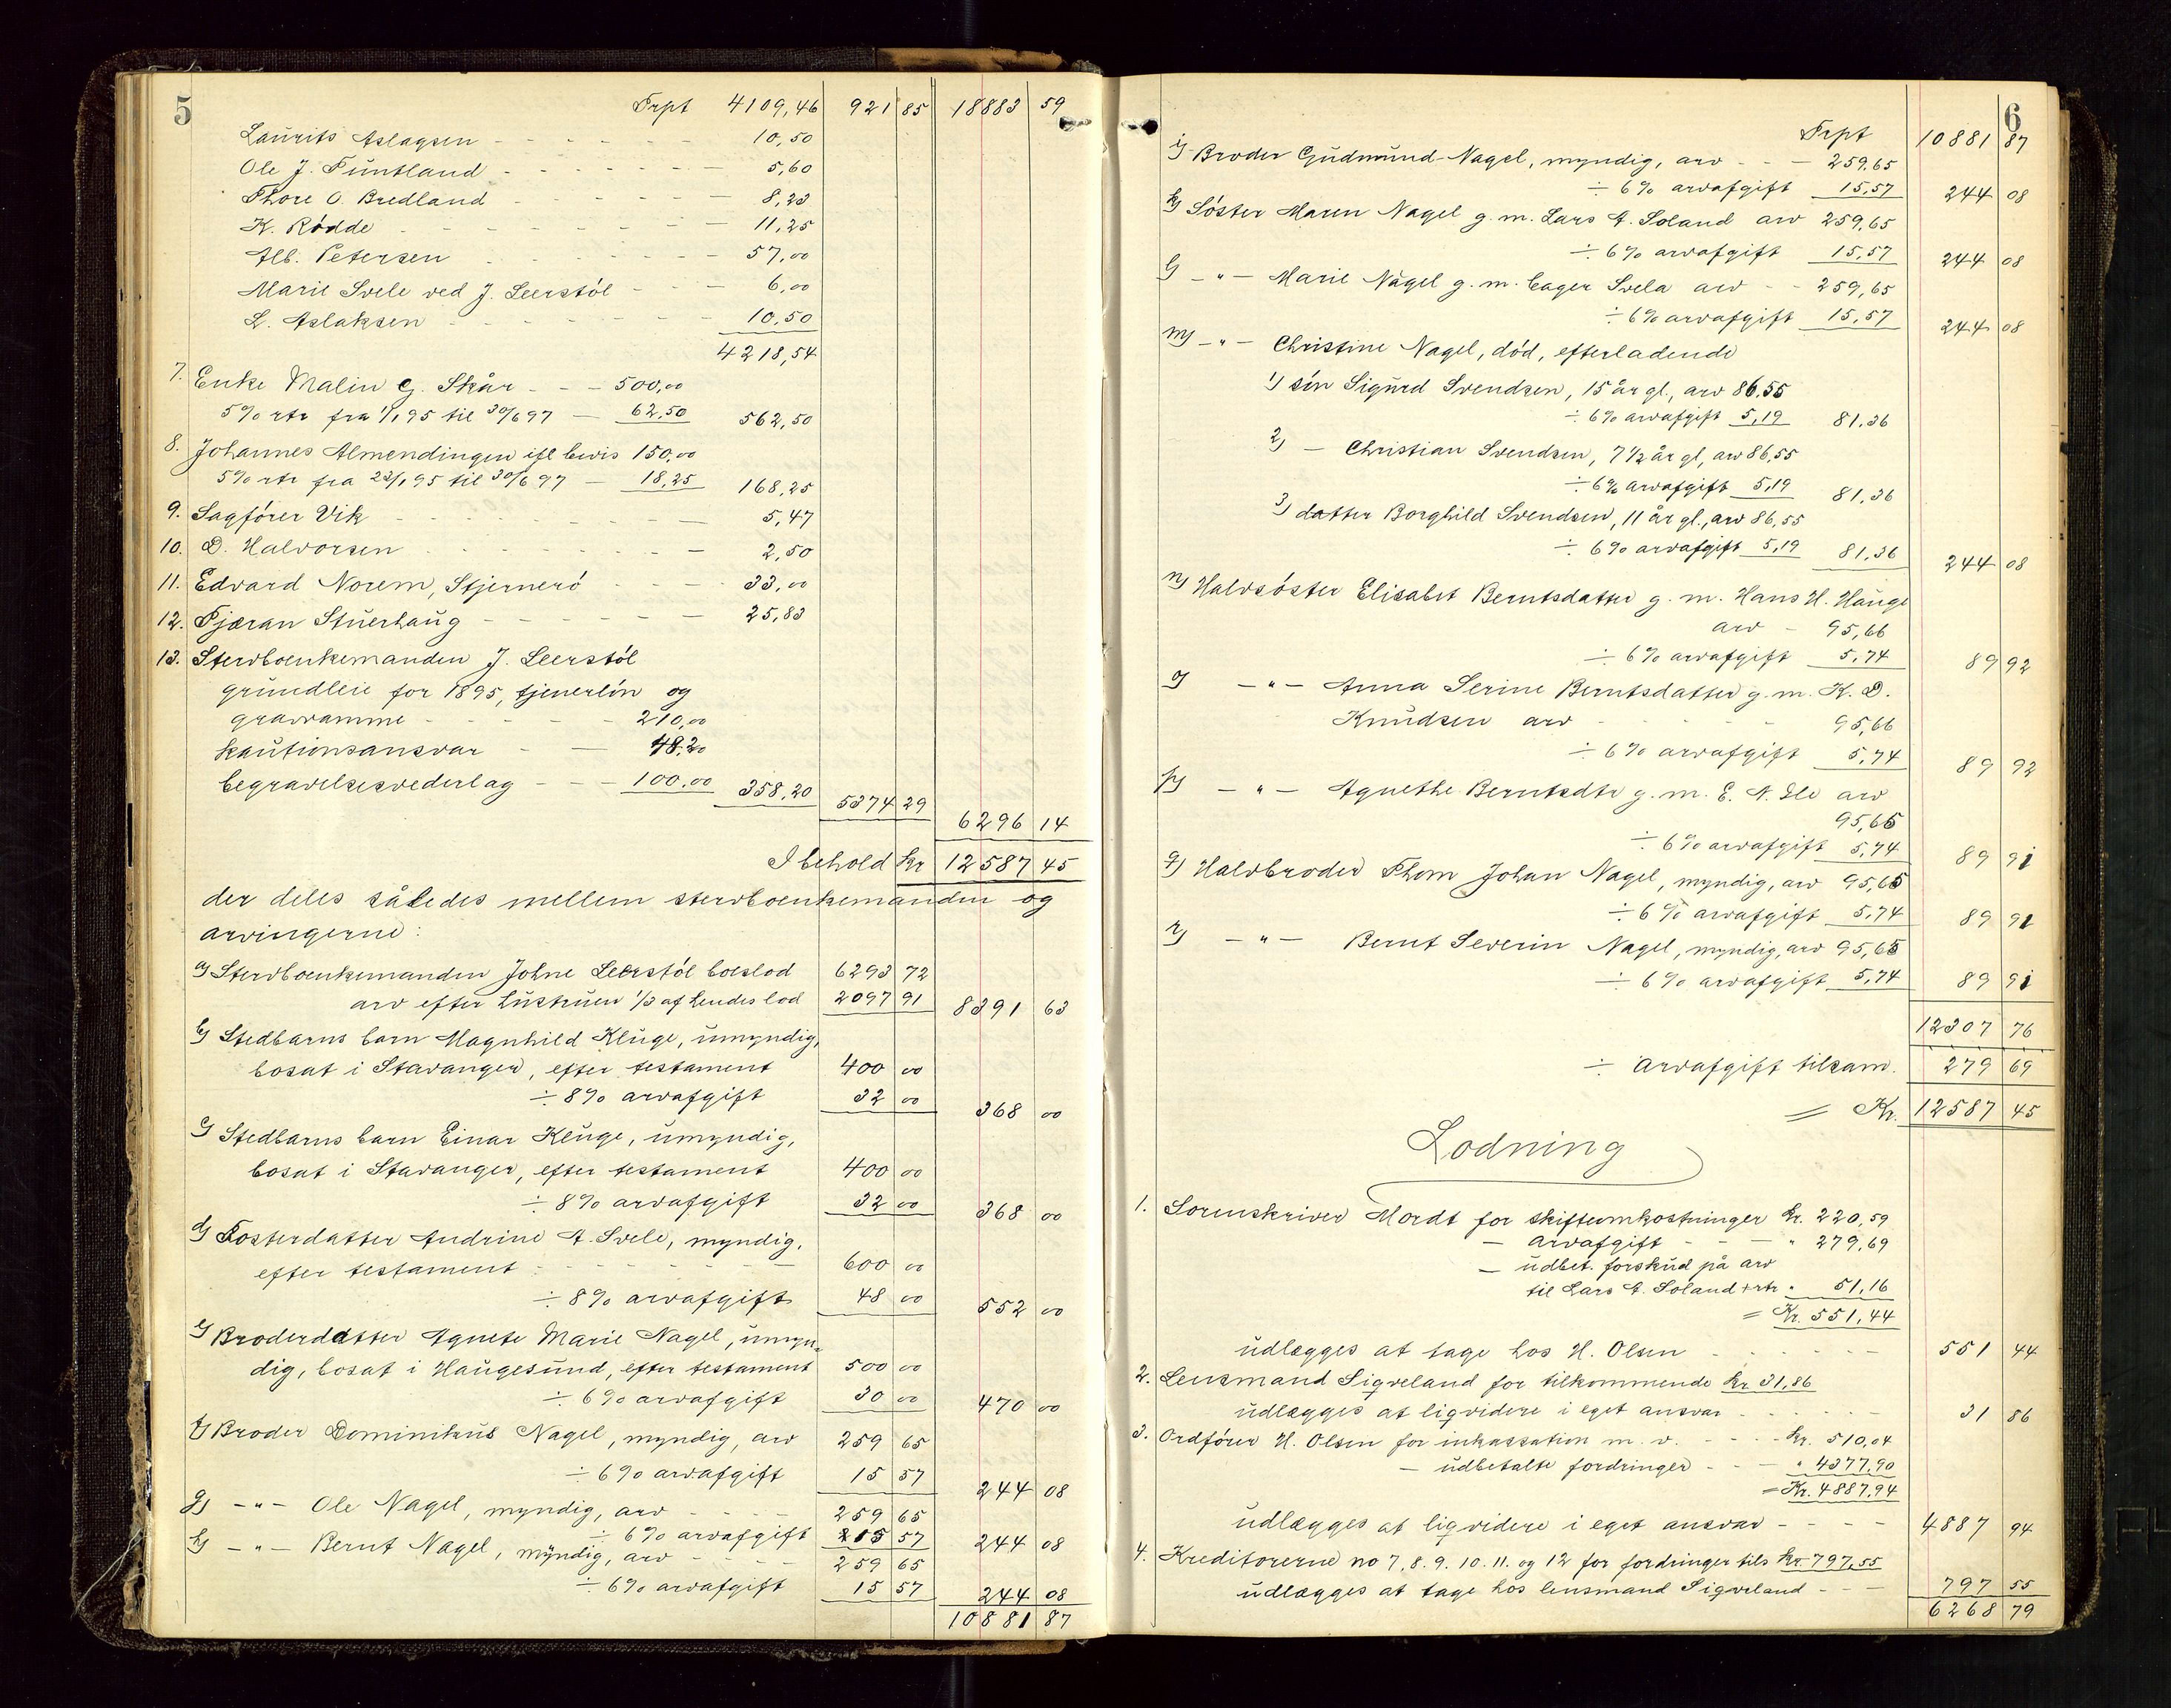 5
Trpt 4109,46 921 85 18883 59
Laurits Aslagsen - - - - - 10,50
Ole J. Tuntland - - - - - - 5,60
Thore O. Bredland - - - - - 8,23
K. Rødde - - - - - - - 11,25
Alb. Petersen - - - - - - 57,00
Marie Svele ved J. Leerstøl - - - 6,00
L. Aslaksen - - - - - - 10,50
4218,54
7. Enke Malin G. Skår - - - 500,00
5% rtr fra 1/1 95 til 30/6 97 - 62,50 562,50
8. Johannes Almendingen ifl bevis 150,00
5% rtr fra 23/1 95 til 30/6 97 - 18,25 168,25
9. Sagfører Vik - - - - - - - 5,47
10. D. Halvorsen - - - - - - 2,50
11. Edvard Norem, Stjernerø - - - 33,00
12. Tjæran Stuerhaug - - - - - - 25,83
13. Stervboenkemanden J. Leerstøl
grundleie for 1895, tjenerløn og
gravramme - - - - - 210,00
kautionsansvar - - 48,20
begravelsesvederlag - - - 100,00 358,20 5374 29
6296 14
I behold kr 12587 45
der deles således mellem stervboenkemanden og
arvingerne:
a) Stervboenkemanden Johne Leerstøl boeslod 6293 72
arv efter hustruen 1/3 af hendes lod 2097 91 8391 63
b) Stedbarns barn Magnhild Kluge, umyndig,
bosat i Stavanger, efter testament 400 00
÷ 8% arvafgift 32 00 368 00
c) Stedbarns barn Einar Kluge, umyndig,
bosat i Stavanger, efter testament 400 00
÷ 8% arvafgift 32 00 368 00
d) Fosterdatter Andrine A. Svele, myndig,
efter testament - - - - - - 600 00
÷ 8% arvafgift 48 00 552 00
e) Broderdatter Agnete Marie Nagel, umyn-
dig, bosat i Haugesund, efter testament 500 00
÷ 6% arvafgift 30 00 470 00
f) Broder Dominikus Nagel, myndig, arv 259 65
÷ 6% arvafgift 15 57 244 08
g) -"- Ole Nagel, myndig, arv - - - - 259 65
÷ 6% arvafgift 15 57 244 08
h) -"- Bernt Nagel, myndig, arv - - - - 259 65
÷ 6% arvafgift 15 57 244 08
10881 87
6
Trpt 10881 87
i) Broder Gudmund Nagel, myndig, arv - - - 259,65
÷ 6% arvafgift 15,57 244 08
k) Søster Maren Nagel g. m. Lars A. Soland arv 259,65
÷ 6% arvafgift 15,57 244 08
l) -"- Marie Nagel g. m. Eager Svela arv - - 259,65
÷ 6% arvafgift 15,57 244 08
m) -"- Christine Nagel, død, efterladende
1) søn Sigurd Svendsen, 15 år gl., arv 86,55
÷ 6% arvafgift 5,19 81,36
2) - Christian Svendsen, 7 1/2 år gl, arv 86,55
÷ 6% arvafgift 5,19 81,36
3) datter Borghild Svendsen, 11 år gl., arv 86,55
÷ 6% arvafgift 5,19 81,36 244 08
n) Halvsøster Elisabet Berntsdatter g. m. Hans H. Hauge
arv - 95,66
÷ 6% arvafgift 5,74 89 92
o) -"- Anna Serine Berntsdatter g. m. K. D.
Knudsen arv - - - - 95,66
÷ 6% arvafgift 5,74 89 92
p) -"- Agnethe Berntsdtr g. m. E. N. Øle arv
95,65
÷ 6% arvafgift 5,74 89 91
q) Halvbroder Thom Johan Nagel, myndig, arv 95,65
÷ 6% arvafgift 5,74 89 91
r) -"- Bernt Severin Nagel, myndig, arv 95,65
÷ 6% arvafgift 5,74 89 91
12307 76
÷ Arvafgift tilsam. 279 69
= Kr. 12587 45
Lodning
1. Sorenskriver Mordt for skifteomkostninger kr. 220,59
- arvafgift - - - " 279,69
- udbet. forskud på arv
til Lars A. Soland + rtr " 51,16
= Kr. 551,44
udlægges at tage hos H. Olsen - - - - - - 551 44
2. Lensmand Sigveland for tilkommende kr 31,86
udlægges at ligvidere i eget ansvar - - - - - 31 86
3. Ordfører H. Olsen for inkassation m. v. - - - kr. 510,04
- udbetalte fordringer - - - " 4377,90
= Kr. 4887,94
udlægges at ligvidere i eget ansvar - - - - 4887 94
4. Kreditorerne no 7, 8. 9. 10. 11. og 12 for fordringer tils kr. 797,55
udlægges at tage hos lensmand Sigveland - - - 797 55
6268 79